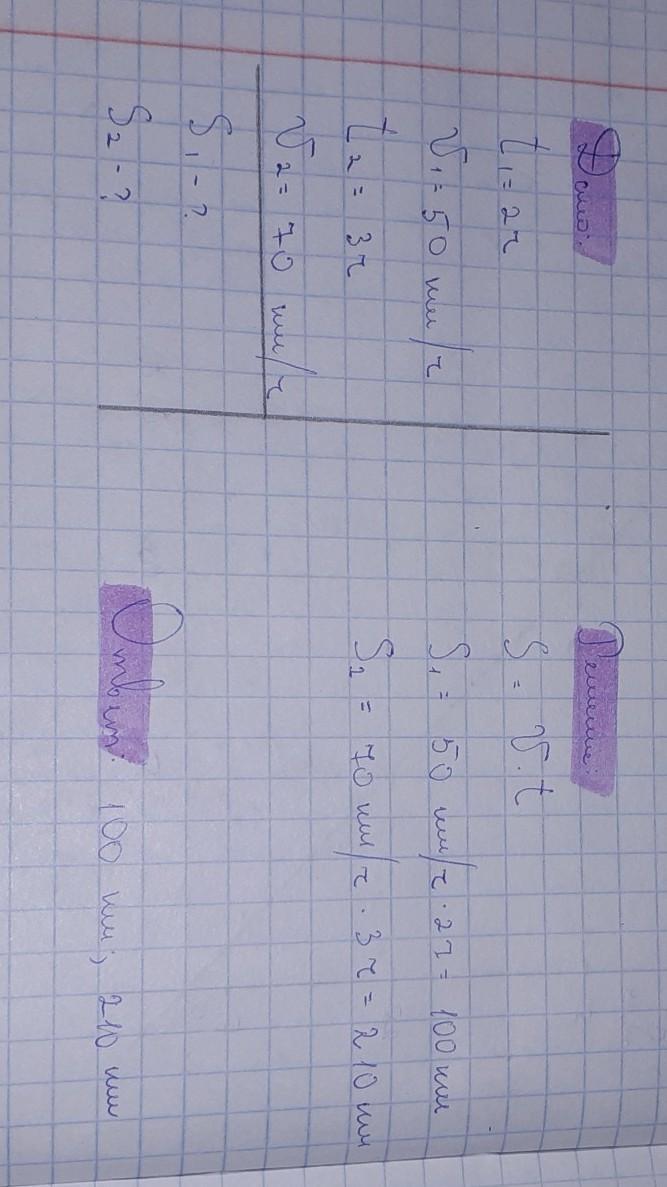 Дано:
t₁ = 2ч
v₁ = 50 км/ч
t₂ = 3ч
v₂ = 70 км/ч
S₁ - ?
S₂ - ?
Решение:
S = v · t
S₁ = 50 км/ч · 2ч = 100 км
S₂ = 70 км/ч · 3ч = 210 км
Ответ: 100 км; 210 км